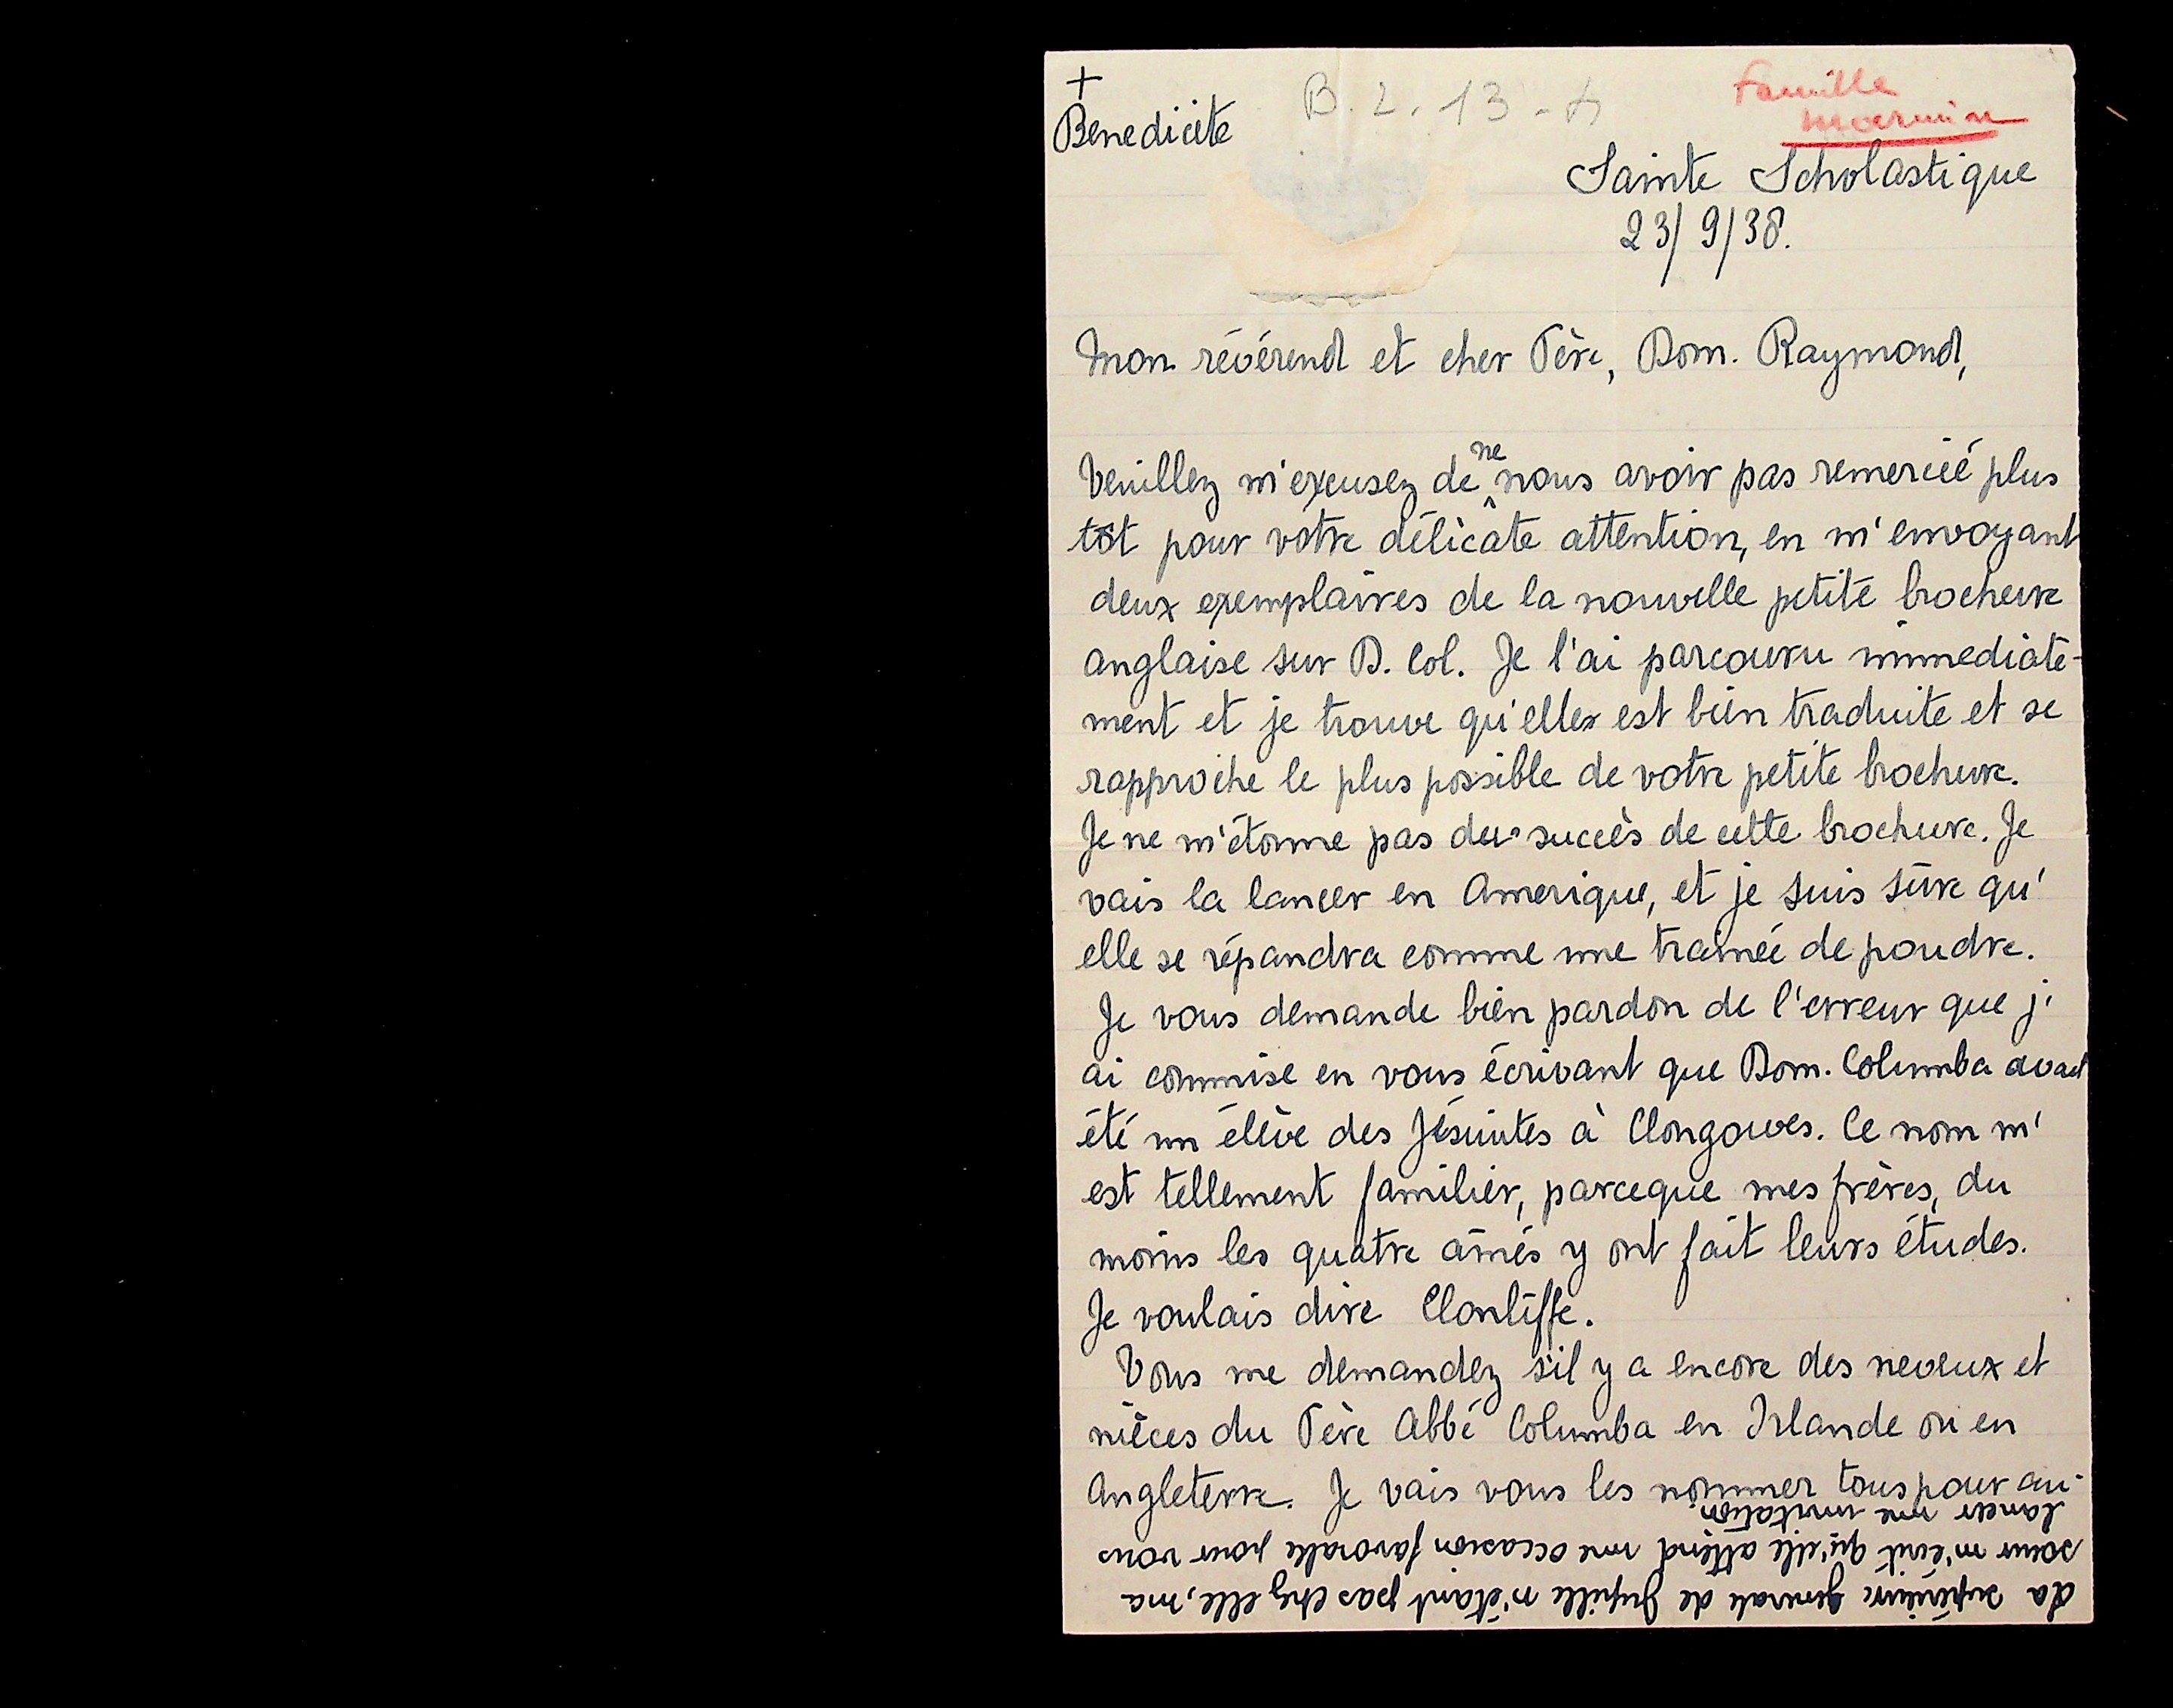 +
Benedicite
B. 2. 13 -
Famille
Marmion
Sainte Scholastique
23/9/38.
Mon révérend et cher Père, Dom. Raymond,
Veuillez m'excusez de ne nous avoir pas remercié plus
tôt pour votre délicate attention, en m'envoyant
deux exemplaires de la nouvelle petite brochure
anglaise sur D. Col. Je l'ai parcouru immediate-
ment et je trouve qu'elle est bien traduite et se
rapproche le plus possible de votre petite brochure.
Je ne m'étonne pas du succès de cette brochure. Je
vais la lancer en Amerique, et je suis sûre qu'
elle se répandra comme une traînée de poudre.
Je vous demande bien pardon de l'erreur que j'
ai commise en vous écrivant que Dom. Columba avait
été un élève des Jésuites à Clongowes. Ce nom m'
est tellement familier, parceque mes frères, du
moins les quatre aînés y ont fait leurs études.
Je voulais dire Clonliffe.
Vous me demandez s'il y a encore des neveux et
nièces du Père Abbé Columba en Irlande ou en
Angleterre. Je vais vous les nommer tous pour au-
La supérieure generale de Jupille n'étant pas chez elle, ma
soeur m'écrit qu'elle attend une occasion favorable pour vous
lancer une invitation.